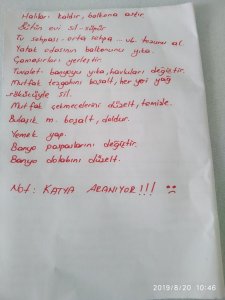 Halıları kaldır, balkona astır.
Bütün evi sil - süpür
Tv sehpası - orta sehpa ... vb. tozunu al.
Yatak odasının balkonunu yıka.
Çamaşırları yerleştir.
Tuvalet - banyoyu yıka, havluları değiştir.
Mutfak tezgahını boşalt, her yeri yağ
sökücüyle sil.
Mutfak çekmecelerini düzelt, temizle.
Bulaşık m. boşalt, doldur.
Yemek yap.
Banyo paspaslarını değiştir.
Banyo dolabını düzelt.
NOT: KATYA ARANIYOR!!! :(
2019/8/20 10:46